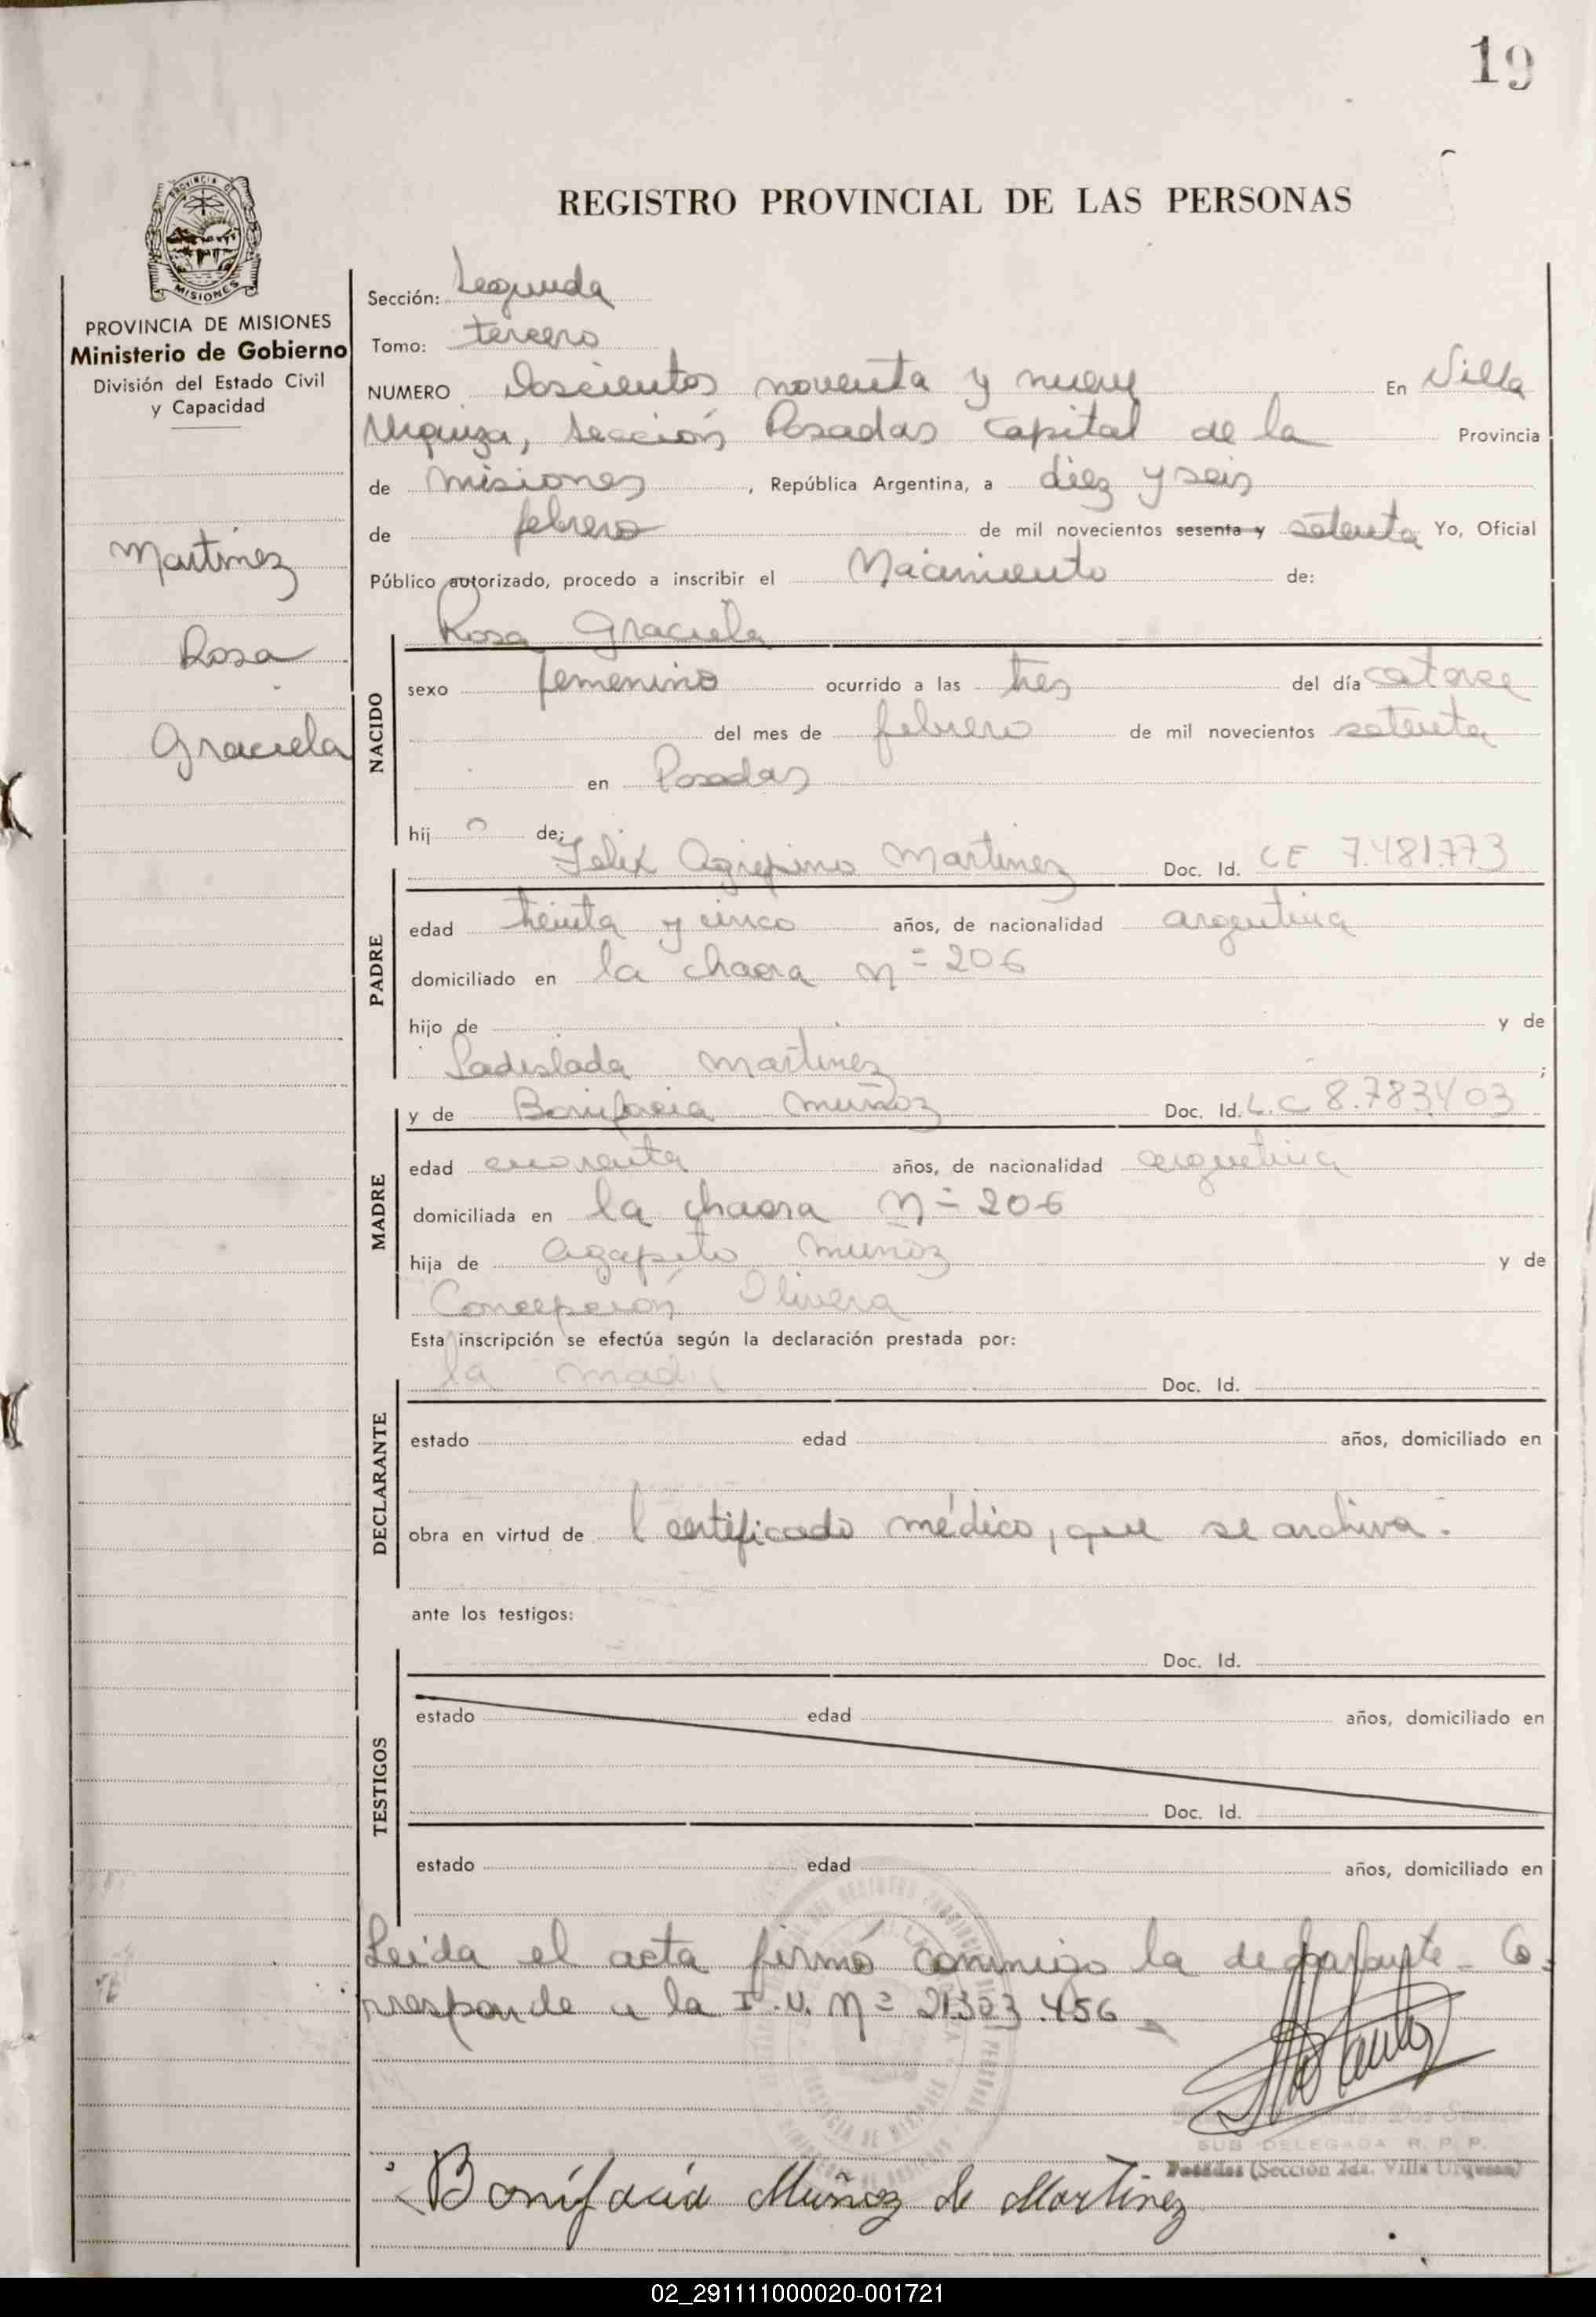 19
REGISTRO PROVINCIAL DE LAS PERSONAS
PROVINCIA DE MISIONES
Ministerio de Gobierno
División del Estado Civil
y Capacidad
Martinez
Rosa
Graciela
Sección: Segunda
Tomo: tercero
NUMERO Doscientos noventa y nueve En Villa
Urquiza, Sección Posadas capital de la Provincia
de misiones, República Argentina, a diez y seis
de febrero de mil novecientos sesenta y setenta Yo, Oficial
Público autorizado, procedo a inscribir el Nacimiento de:
Rosa Graciela
NACIDO
sexo femenino ocurrido a las tres del día catorce
del mes de febrero de mil novecientos setenta
en Posadas
hij de:
Felix Agripino Martinez Doc. Id. CE 7.481.773
PADRE
edad treinta y cinco años, de nacionalidad argentina
domiciliado en la chacra n= 206
hijo de y de
Ladislada Martinez ;
y de Bonifacia Muñoz Doc. Id. L.C 8.783.403
MADRE
edad cuarenta años, de nacionalidad argentina
domiciliada en la chacra n= 206
hija de Agapito Muñoz y de
Concepción Olivera
Esta inscripción se efectúa según la declaración prestada por:
la madre
Doc. Id.
DECLARANTE
estado edad años, domiciliado en
obra en virtud de l certificado médico, que se archiva.
ante los testigos:
Doc. Id.
TESTIGOS
estado edad años, domiciliado en
Doc. Id.
estado edad años, domiciliado en
Leída el acta firmó conmigo la declarante - Co-
rresponde a la I.U. N= 21.303.456
SUB DELEGADA R. P. P.
Posadas (Sección 2da. Villa Urquiza)
Bonifacia Muñoz de Martinez
02_291111000020-001721